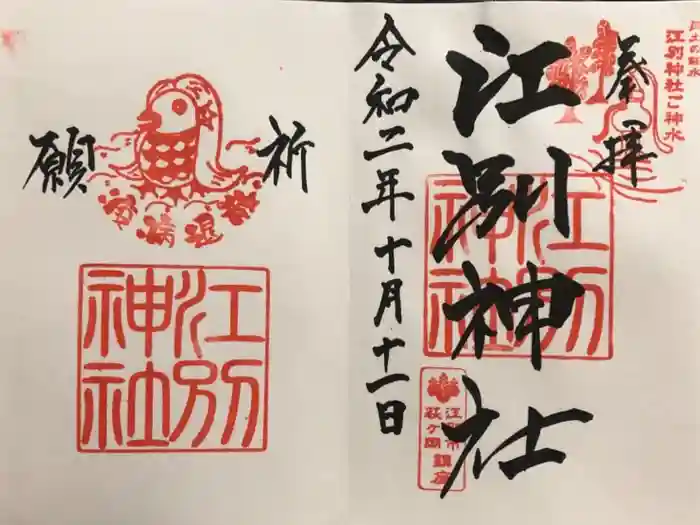 奉拝
江別神社
令和二年十月十一日
江別神社ご神水
江別
神社
江別市
萩ヶ岡
鎮座
祈
願
疫病退散
江別
神社